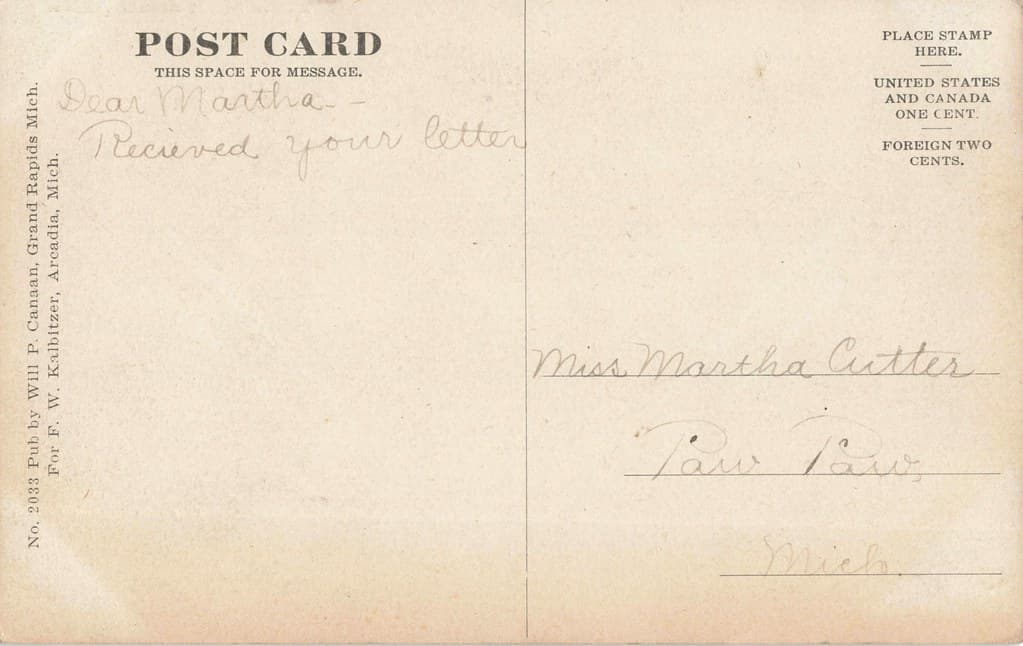 POST CARD
THIS SPACE FOR MESSAGE.
Dear Martha - -
Recieved your letter
No. 2033 Pub by Will P. Canaan, Grand Rapids Mich.
For F. W. Kalbitzer, Arcadia, Mich.
PLACE STAMP
HERE.
UNITED STATES
AND CANADA
ONE CENT.
FOREIGN TWO
CENTS.
Miss Martha Cutter
Paw Paw,
Mich.